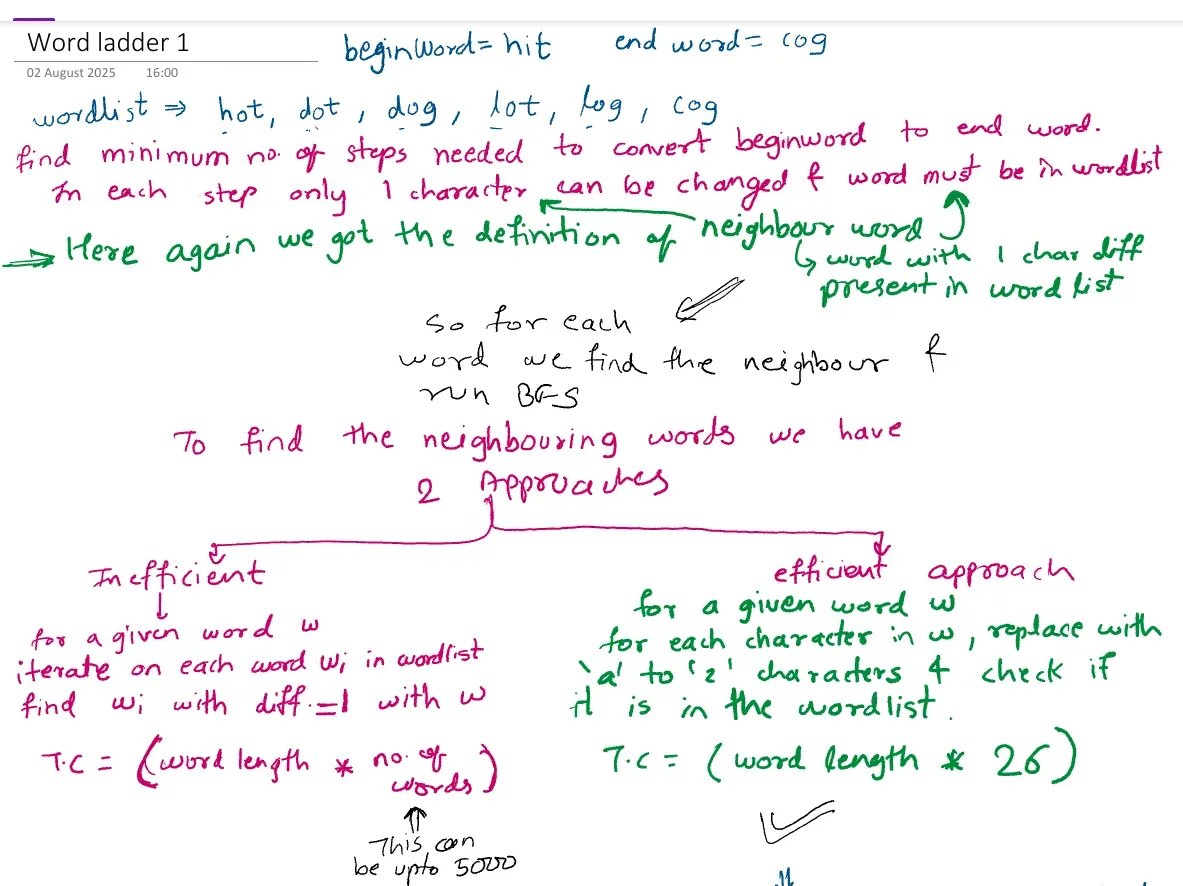 Word ladder 1
beginWord = hit end word = cog
02 August 2025 16:00
wordlist ⇒ hot, dot, dog, lot, log, cog
find minimum no. of steps needed to convert beginword to end word.
In each step only 1 character can be changed & word must be in wordlist
⇒ Here again we got the definition of neighbour word
↳ word with 1 char diff
present in word list
so for each
word we find the neighbour &
run BFS
To find the neighbouring words we have
2 Approaches
Inefficient
for a given word w
iterate on each word wi in wordlist
find wi with diff.=1 with w
T.C = (word length * no. of
words)
This can
be upto 5000
efficient approach
for a given word w
for each character in w, replace with
'a' to 'z' characters & check if
it is in the wordlist.
T.C = (word length * 26)